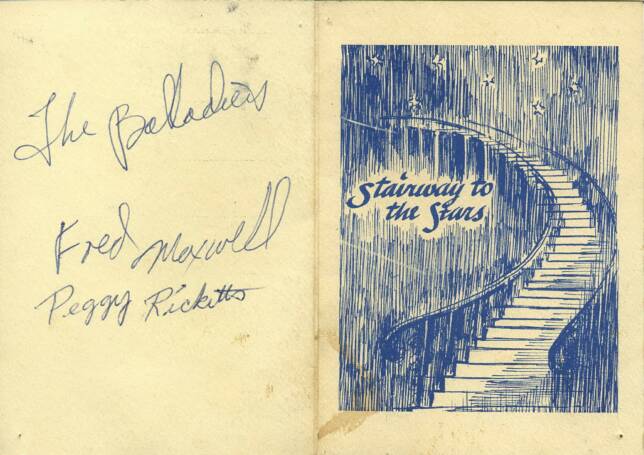 The Balladiers
Fred Maxwell
Peggy Ricketts
Stairway to
the Stars